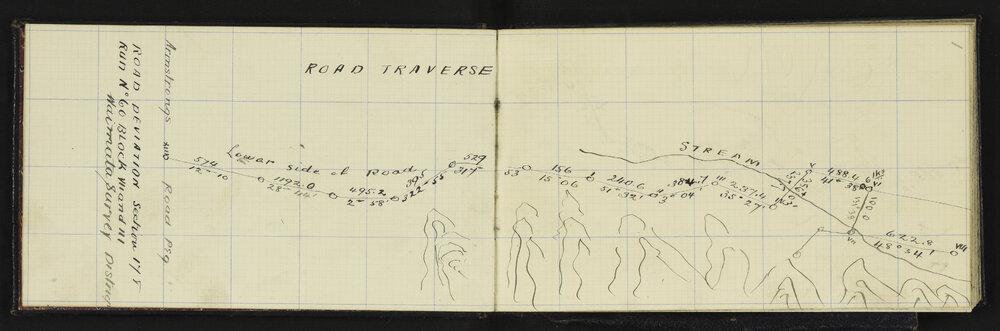 ROAD TRAVERSE
Armstrongs Road Peg
ROAD DEVIATION Section 17 &
RUN No 60 BLOCK III and III
Waimata Survey District
Lower side of Road
574
12-10
1192.0
28-44
495.2
2° 58'
395
322-55
529
317
53
156
15-06
240.6
51° 32'
384.7
3° 04
III
237.4
35° 27'
STREAM
V
488.4
41° 38'
VI
100.0
VII
622.8
48° 54'
VIII
1